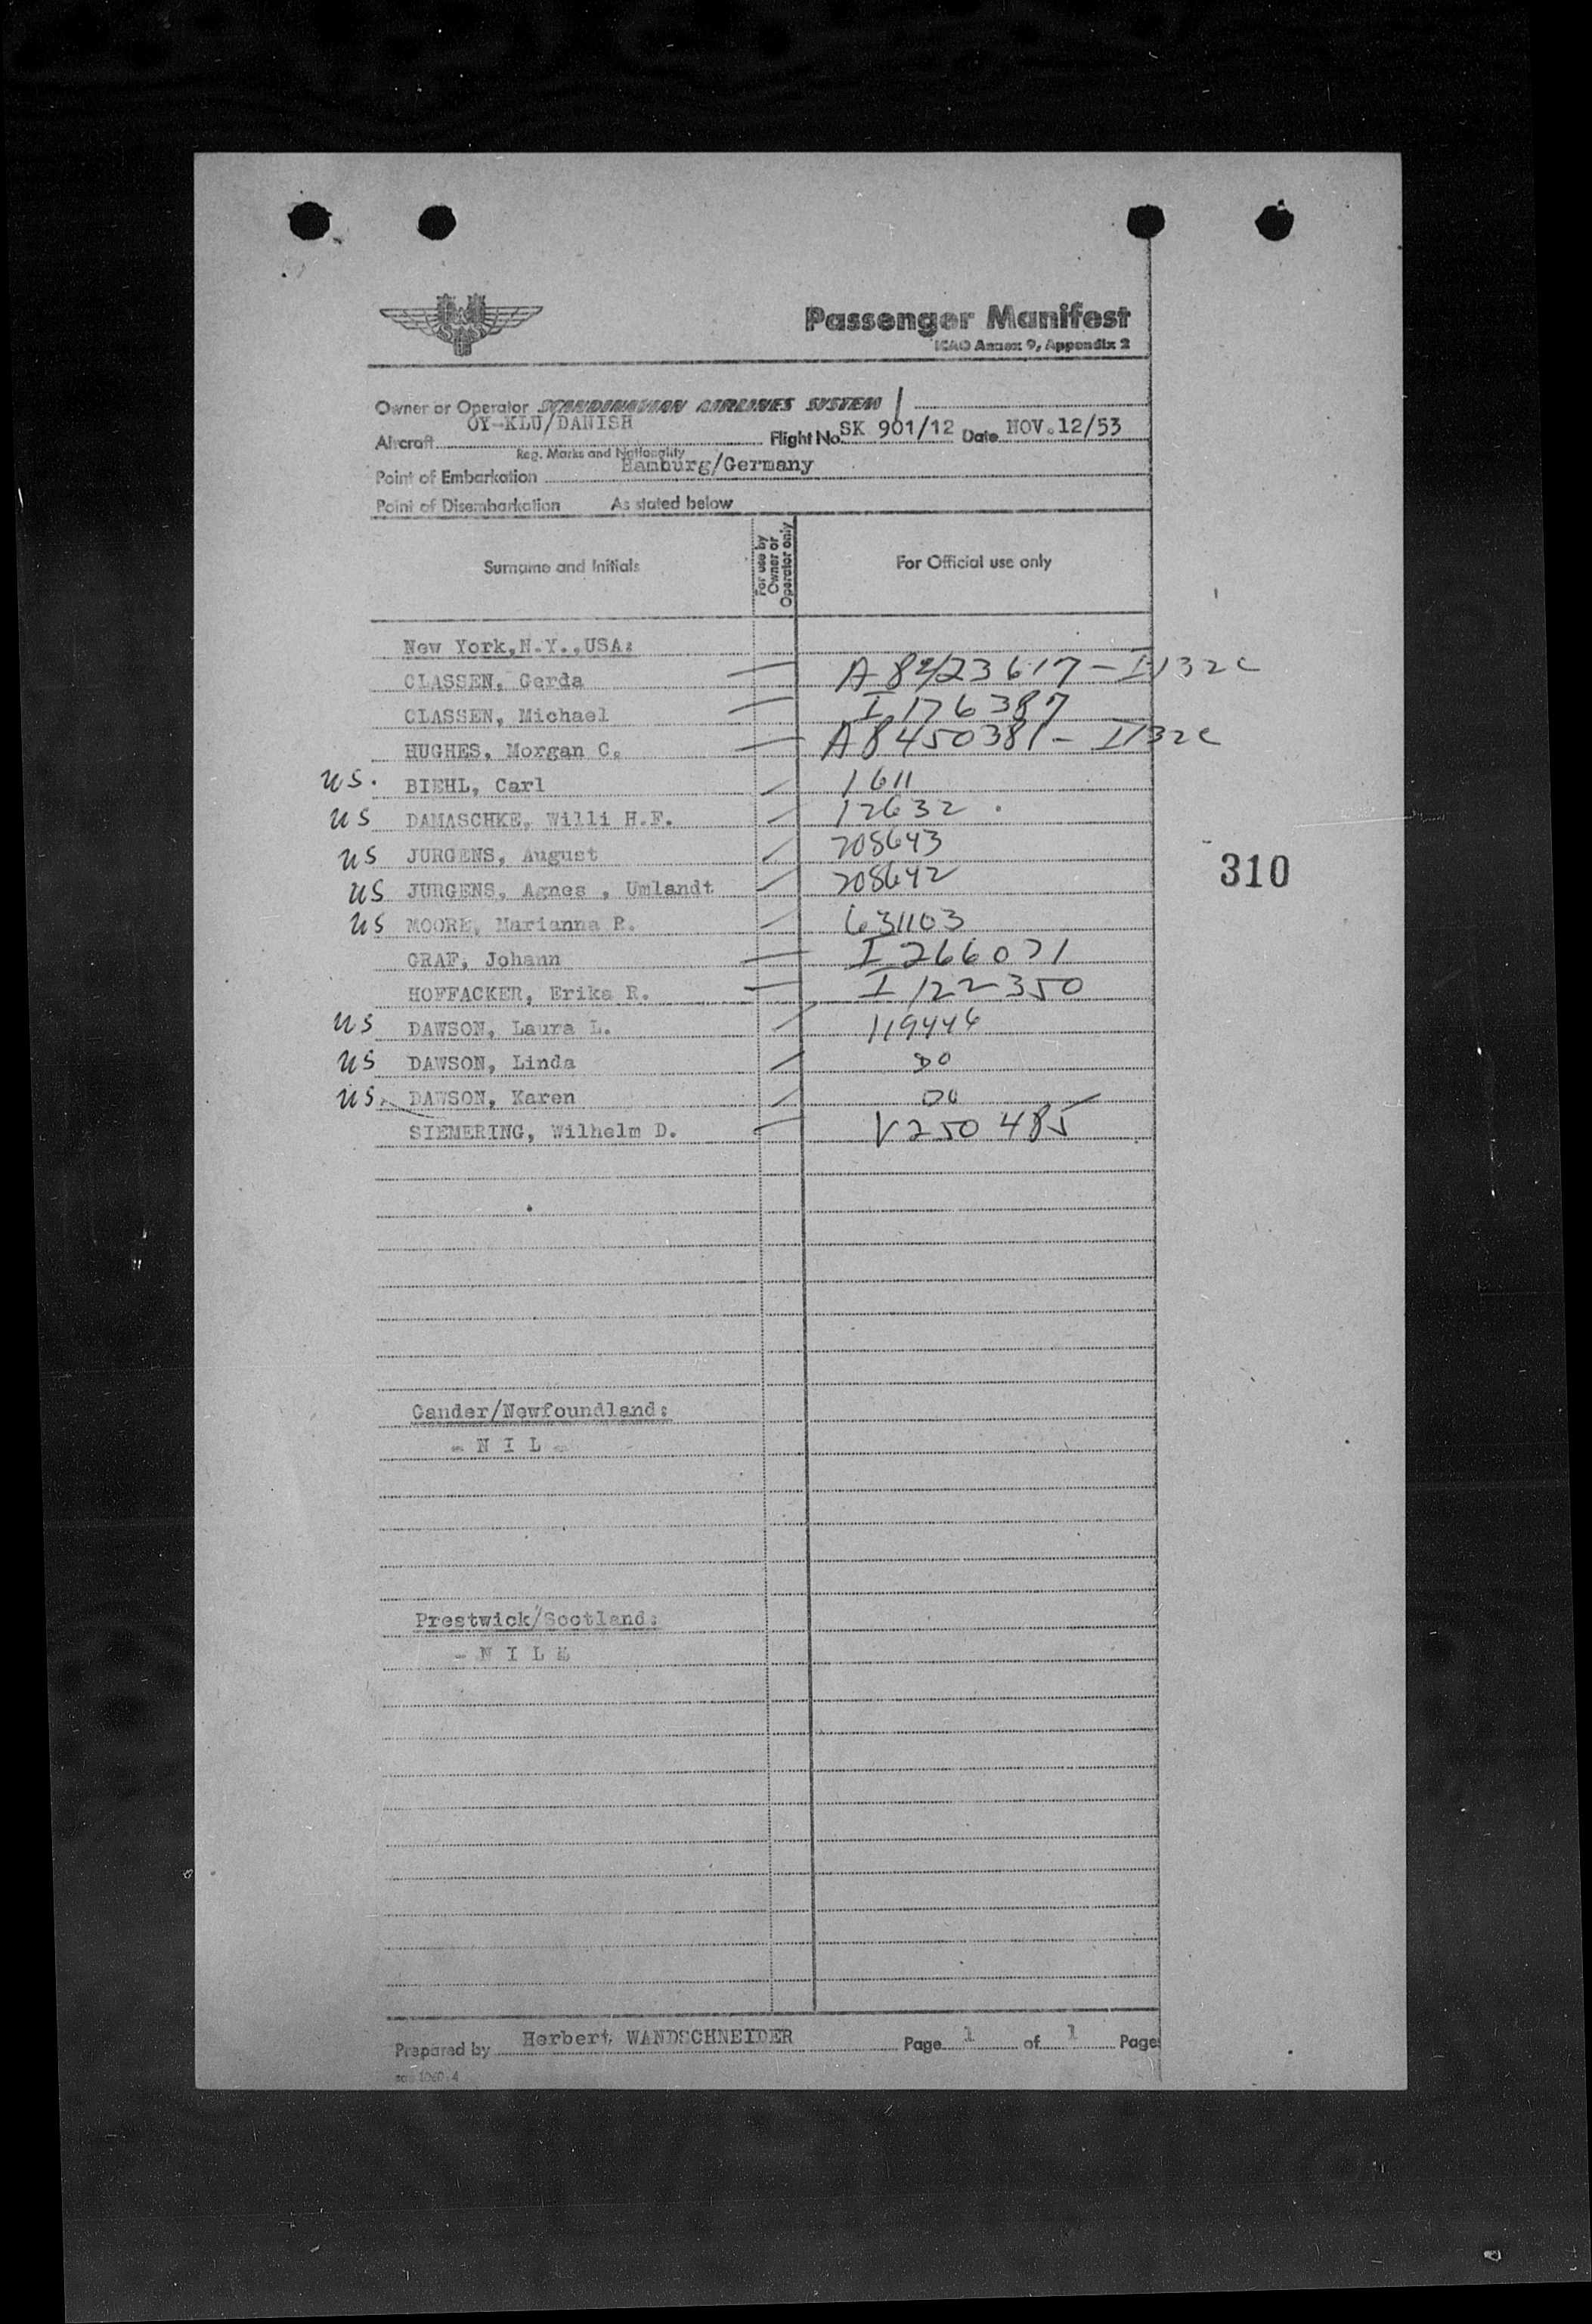 SAS
Passenger Manifest
ICAO Annex 9, Appendix 2
Owner or Operator SCANDINAVIAN AIRLINES SYSTEM
Aircraft OY-KLU/DANISH Flight No. SK 901/12 Date NOV.12/53
Reg. Marks and Nationality
Point of Embarkation Hamburg/Germany
Point of Disembarkation As stated below
Surname and Initials For use by Owner or Operator only For Official use only
New York,N.Y.,USA:
CLASSEN, Gerda — A8423617 - I132c
CLASSEN, Michael — I 176387
HUGHES, Morgan C. — A8450381 - I132c
US. BIEHL, Carl / 1611
US DAMASCHKE, Willi H.F. / 12632 .
US JURGENS, August / 208643
310
US JURGENS, Agnes , Umlandt / 208642
US MOORE, Marianna R. / 631103
GRAF, Johann — I 266071
HOFFACKER, Erika R. — I 122350
US DAWSON, Laura L. / 119446
US DAWSON, Linda / DO
US DAWSON, Karen / DO
SIEMERING, Wilhelm D. — V250485
Gander/Newfoundland:
- N I L -
Prestwick/Scotland:
- N I L
Prepared by Herbert WANDSCHNEIDER Page 1 of 1 Page